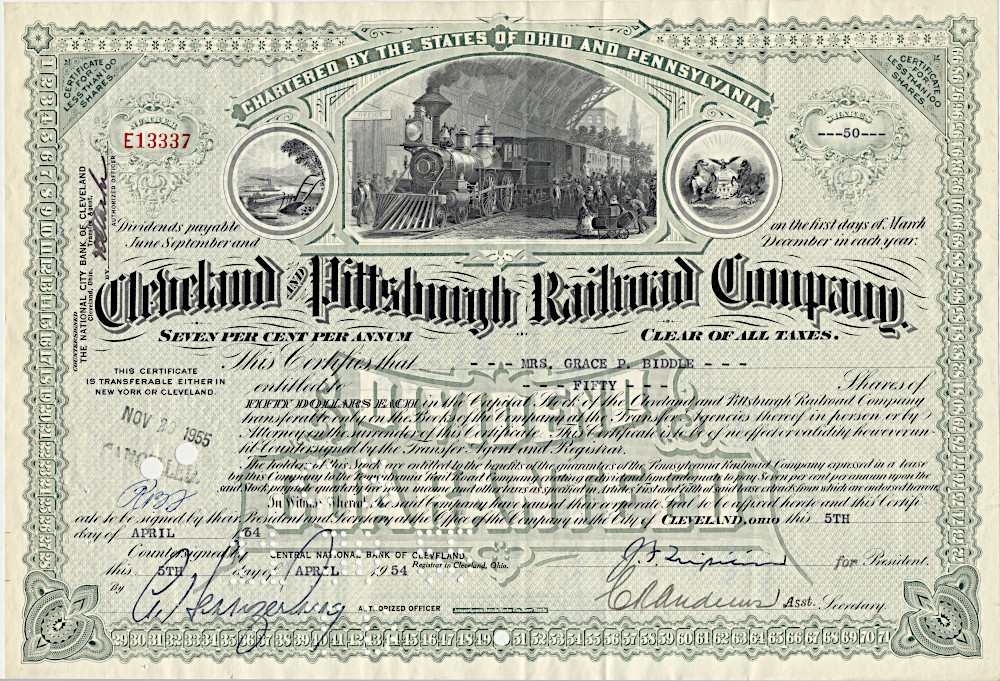 CHARTERED BY THE STATES OF OHIO AND PENNSYLVANIA
CERTIFICATE FOR LESS THAN 100 SHARES.
CERTIFICATE FOR LESS THAN 100 SHARES.
NUMBER
E13337
SHARES
---50---
Dividends payable
June September and
on the first days of March
December in each year.
COUNTERSIGNED
THE NATIONAL CITY BANK OF CLEVELAND
Cleveland, Ohio. Transfer Agent.
BY
AUTHORIZED OFFICER
Cleveland AND Pittsburgh Railroad Company.
SEVEN PER CENT PER ANNUM
CLEAR OF ALL TAXES.
THIS CERTIFICATE
IS TRANSFERABLE EITHER IN
NEW YORK OR CLEVELAND.
This Certifies that --- MRS. GRACE P. BIDDLE ---
entitled to --- FIFTY --- Shares of
FIFTY DOLLARS EACH in the Capital Stock of the Cleveland and Pittsburgh Railroad Company
transferable only on the Books of the Company at the Transfer Agencies thereof in person or by
Attorney on the surrender of this Certificate. This Certificate is not of effect or validity however un-
til Countersigned by the Transfer Agent and Registrar.
NOV 29 1955
CANCELLED
The holders of this Stock are entitled to the benefits of the guaranties of the Pennsylvania Railroad Company expressed in a lease
by this Company to the Pennsylvania Railroad Company creating a dividend fund adequate to pay Seven per cent per annum upon the
said Stock payable quarterly free from income and other taxes as specified in Articles First and Fifth of said lease extracts from which are endorsed hereon.
In Witness Whereof the said Company have caused their corporate seal to be affixed hereto and this Certifi-
cate to be signed by their President and Secretary at the Office of the Company in the City of CLEVELAND, OHIO this 5TH
day of APRIL 1954
Countersigned by CENTRAL NATIONAL BANK OF CLEVELAND,
Registrar in Cleveland, Ohio.
this 5TH day of APRIL 1954
By
AUTHORIZED OFFICER
for President.
Asst. Secretary.
29 30 31 32 33 34 35 36 37 38 39 40 41 42 43 44 45 46 47 48 49 50 51 52 53 54 55 56 57 58 59 60 61 62 63 64 65 66 67 68 69 70 71